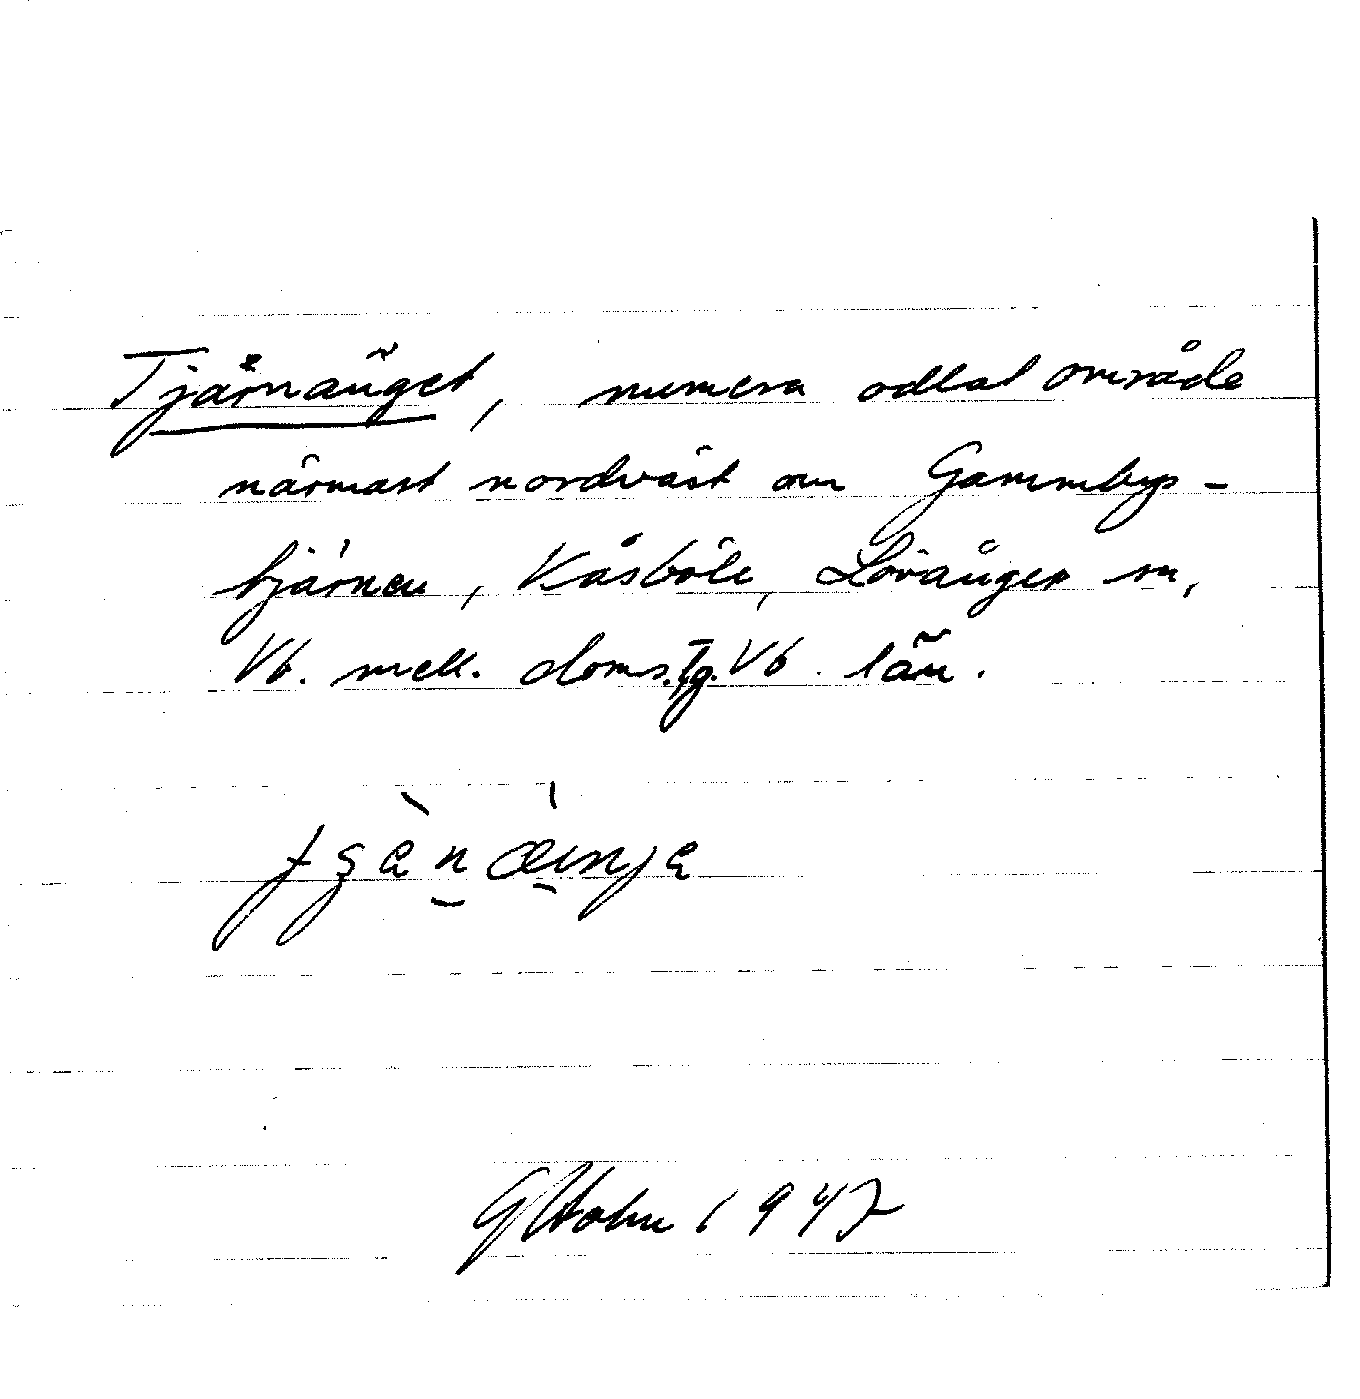 Tjärnänget, numera odlat område
närmast nordväst om Gammbyp-
tjärnen, Kåsböle, Lövånger sn,
Vb. mell. doms.Tg. Vb. län.
1947